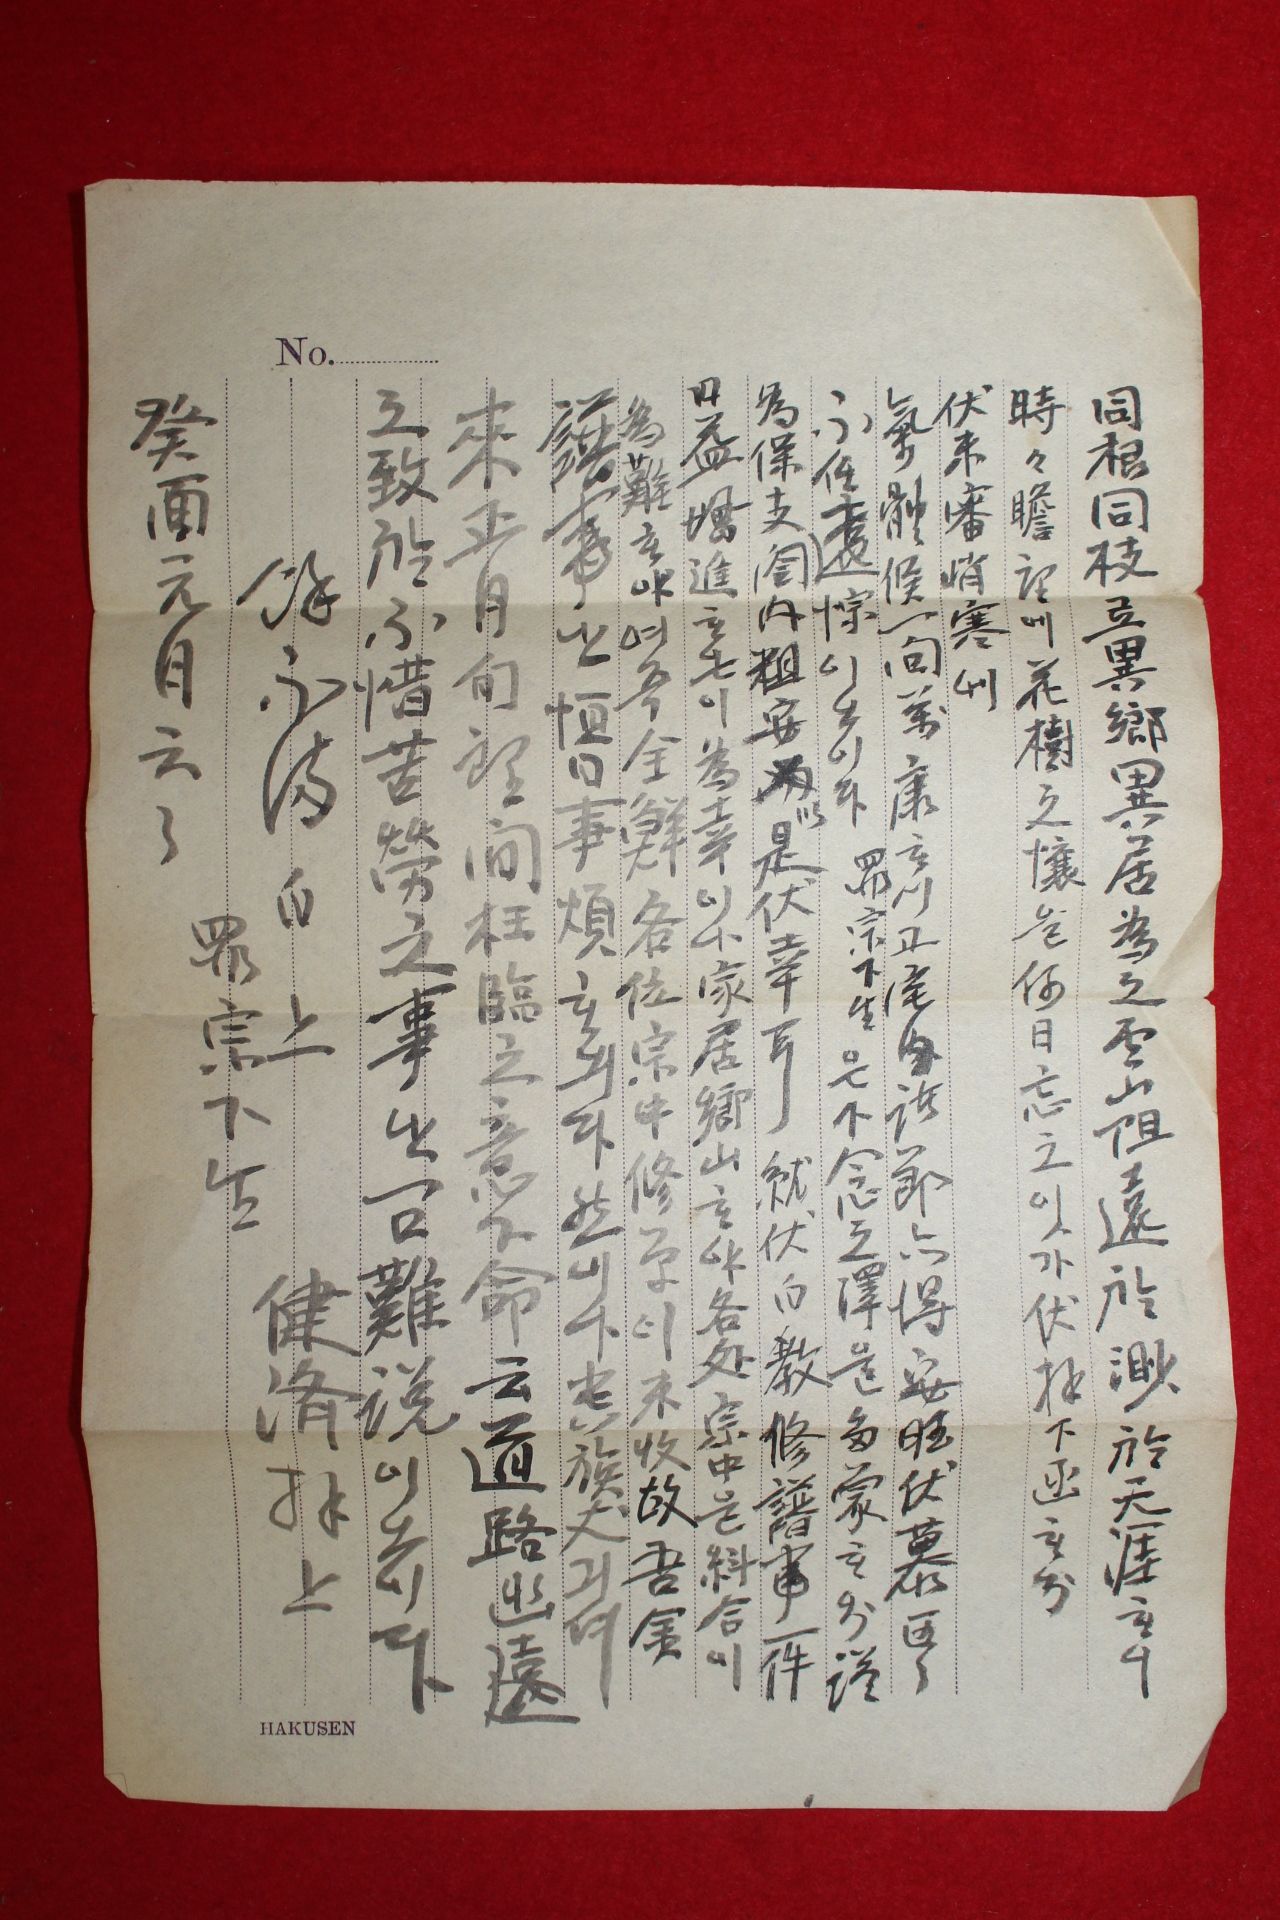 No.
同根同枝로異鄕異居為之雲山阻遠於渺於天涯하니
時々瞻望에花樹之懷는何日忘之잇가伏拜下函하와
伏未審峭寒에
氣體候一向萬康하시고宅內諸節亦得安旺伏慕區々
不任遠悰이로이다 罪宗下生은下念之澤을多蒙하와謹
為保支閤內粗安以是伏幸耳 就伏白敎修譜事一件
日益增進하니이為幸이오나家居鄕山하야各處宗中은糾合이
為難하야여至今全鮮各位宗中修單이未收故吾宗
譜事난恒日事煩하외다然이나貴族大되며
來正月旬望間枉臨之意下命云道路遙遠
之致於不惜苦勞之事난言難說이로이다
餘不備白上
罪宗下生 健濟拜上
癸酉元月六日
HAKUSEN